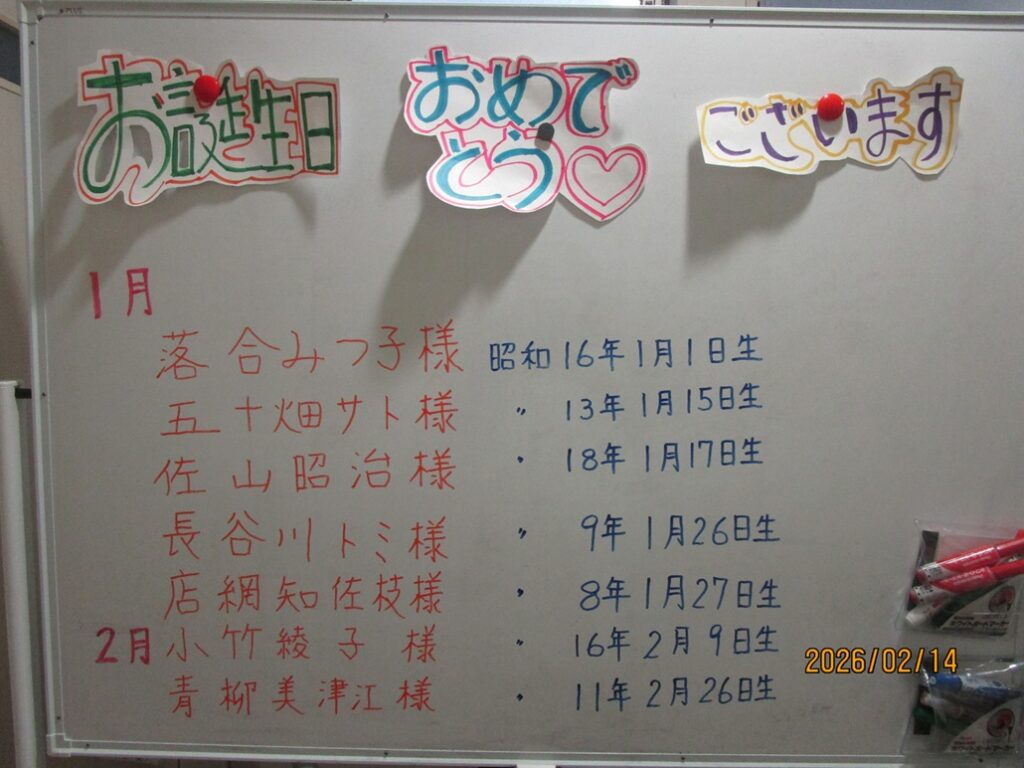 お誕生日
おめで
とう
ございます
1月
落合みつ子様 昭和16年1月1日生
五十畑サト様 〃 13年1月15日生
佐山昭治様 〃 18年1月17日生
長谷川トミ様 〃 9年1月26日生
店網知佐枝様 〃 8年1月27日生
2月 小竹綾子様 〃 16年2月9日生
青柳美津江様 〃 11年2月26日生
2026/02/14
ホワイトボードマーカー
ホワイトボードマーカー